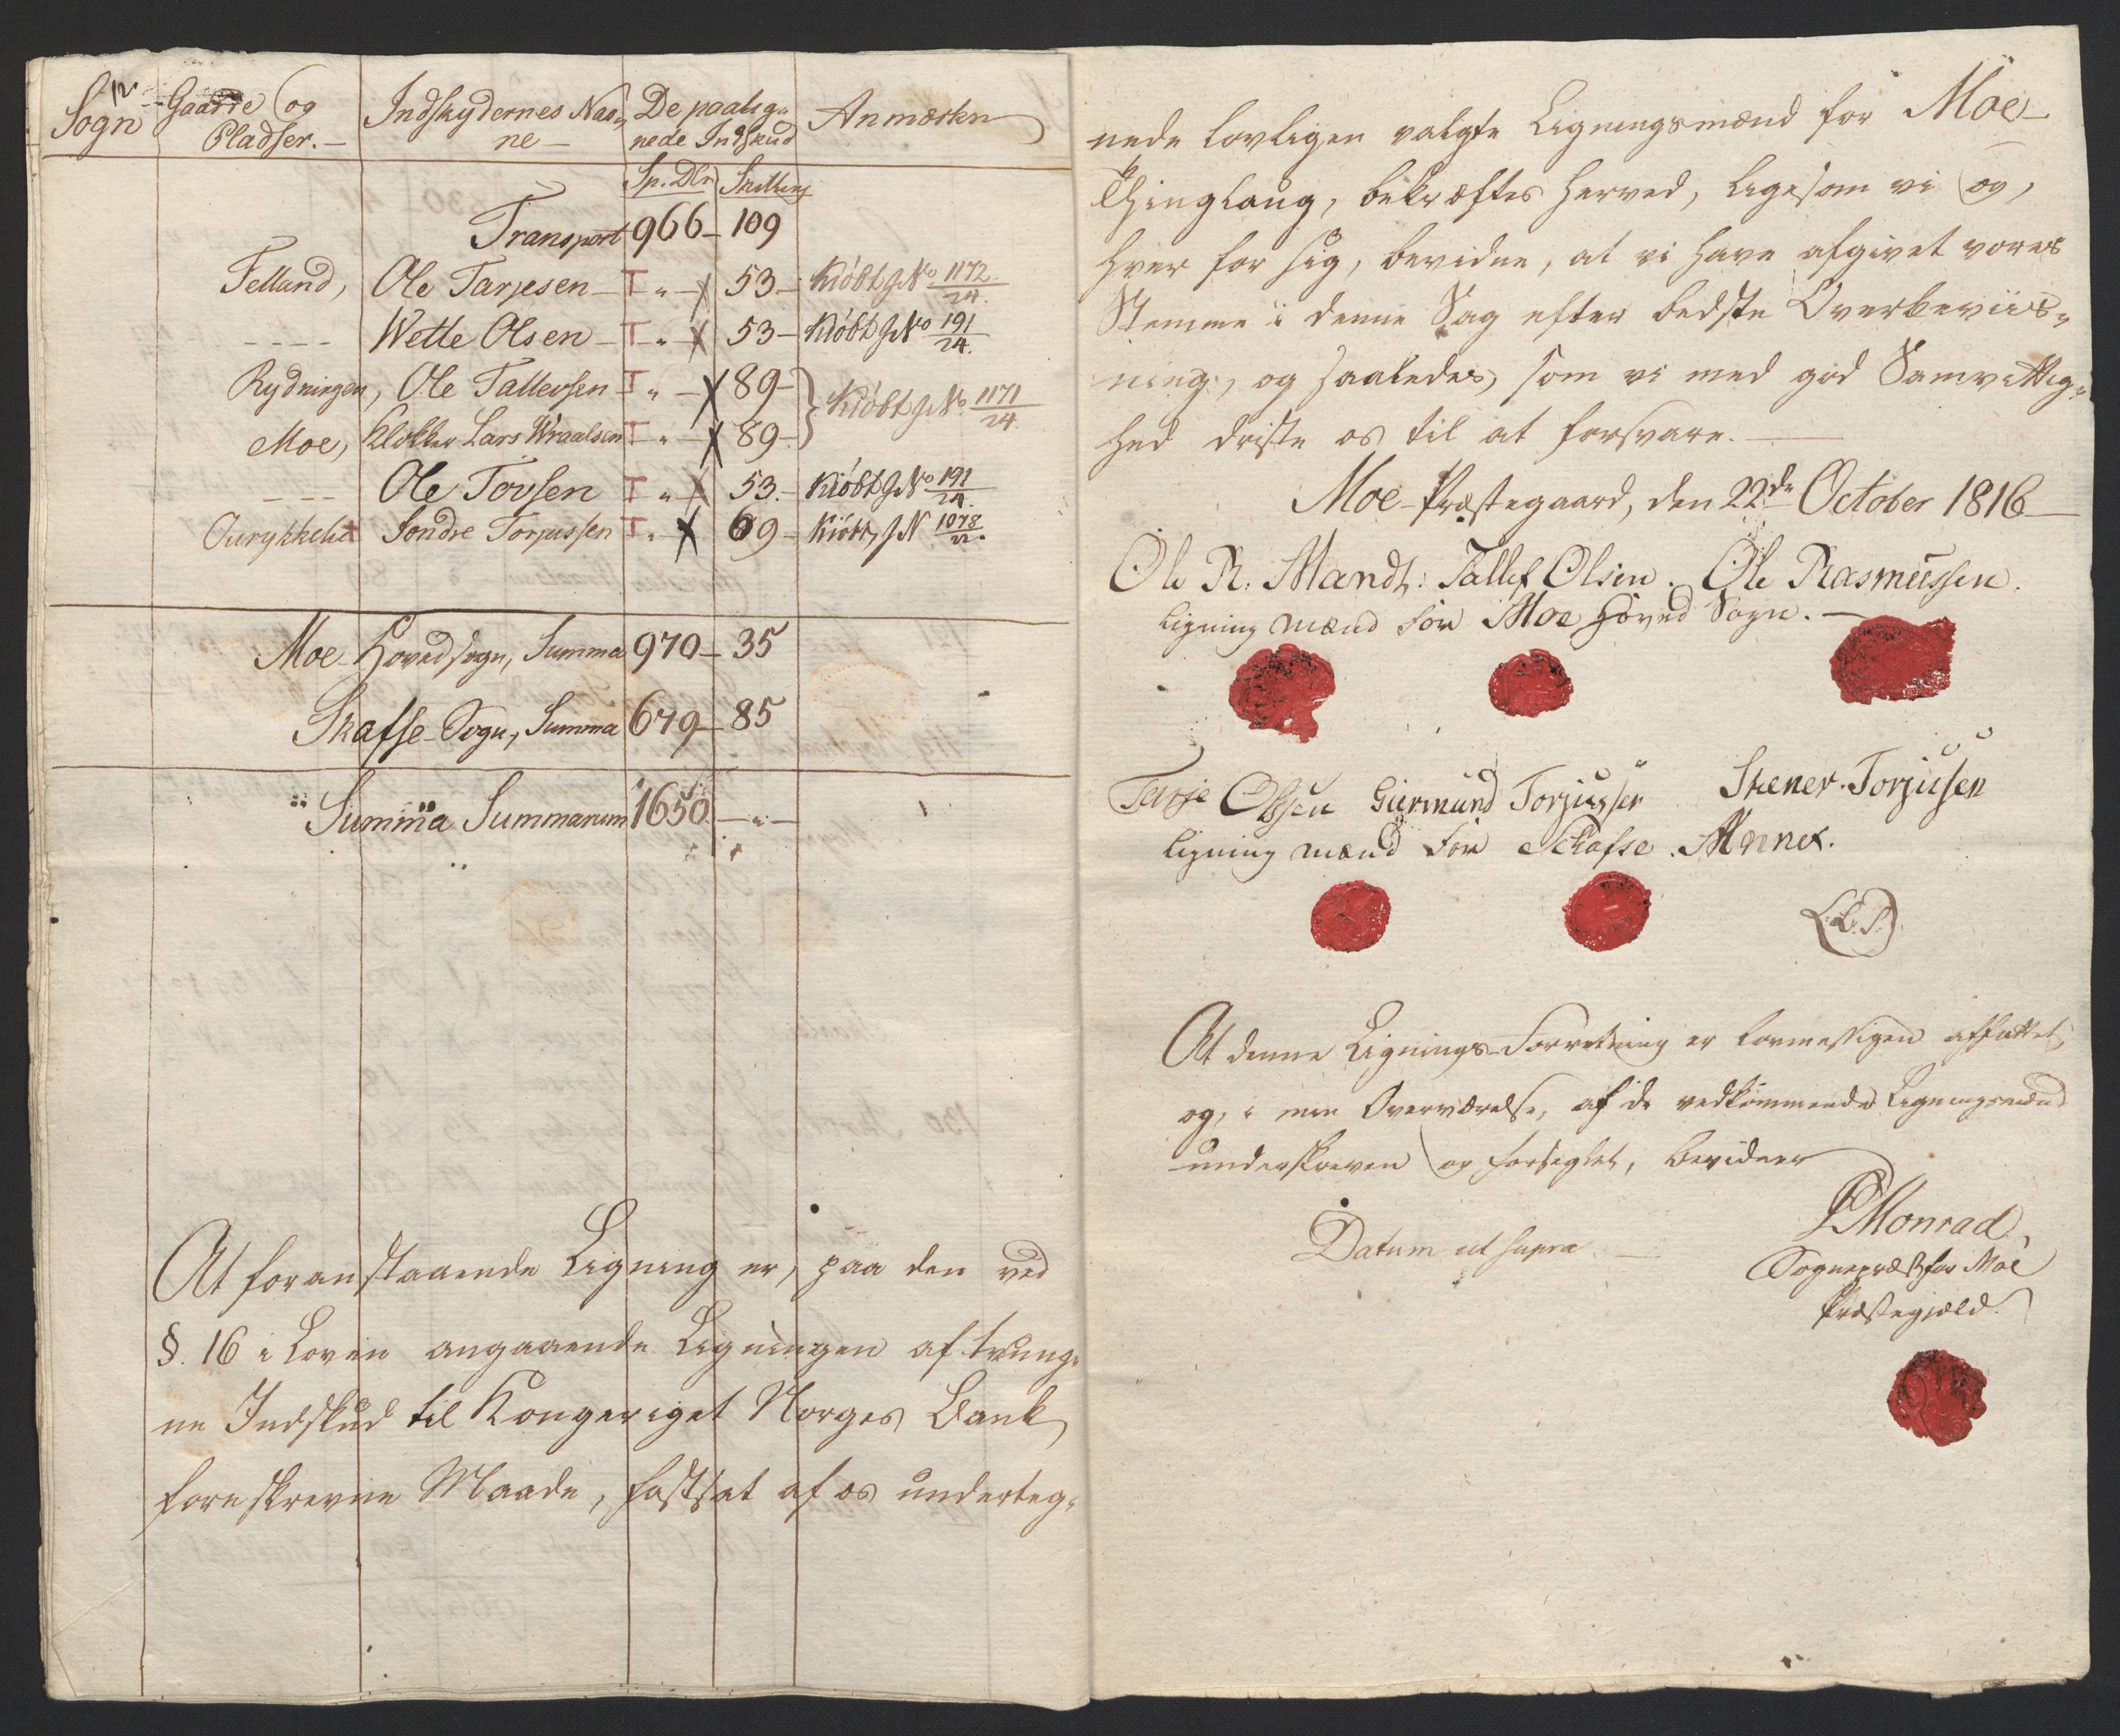 12.
Sogn Gaarde og Pladser. – Indskydernes Nav- ne – De paalig- nede Indskud Anmærkn
Sp. Dlr Skilling
Transport 966 – 109
Felland, Ole Tarjesen – T " – x 53 – Kiöbt JNo 1172/24.
---- Wetle Olsen – T – " – x 53 – Kiöbt JNo 191/24.
Rydningen, Ole Tallevsen T " – x 89 – } Kiöbt JNo 1171/24.
Moe, Klokker Lars Wraalsen T " – x 89 –
--- Ole Tovsen T " x 53. – Kiöbt JNo 191/24.
Ourykhelid Sondre Torjussen T " x 69 – Kiöbt, JN 1078/22.
Moe Hovedsogn, Summa 970 – 35
Skafse Sogn, Summa 679 – 85
Summa Summarum 1650 – " –
At foranstaaende Ligning er, paa den ved
§. 16 i Loven angaaende Ligningen af tvung-
ne Indskud til Kongeriget Norges Bank
foreskrevne Maade, fastsat af os underteg-
nede lovligen valgte Ligningsmænd for Moe
Thinglaug, bekræftes herved, ligesom vi og,
hver for sig, bevidne, at vi have afgivet vores
Stemme i denne Sag efter bedste Overbeviis-
ning, og saaledes, som vi med god Samvittig-
hed driste os til at forsvare. –
Moe Præstegaard, den 22de October 1816 –
Ole R. Mandt: Tallef Olsen. Ole Rasmussen.
ligning mænd for Moe Hoved Sogn. –
Tarje Olsen Giermund Torjussen Steener Torjusen
ligning mænd for Schafse Annex.
(L.S.)
At denne Lignings-Forretning er lovmessigen affattet,
og, i min Overværelse, af de vedkommende Ligningsmænd
underskreven og forseglet, bevidner
Datum ut supra –
P Monrad,
Sognepræst for Moe
Præstegield.